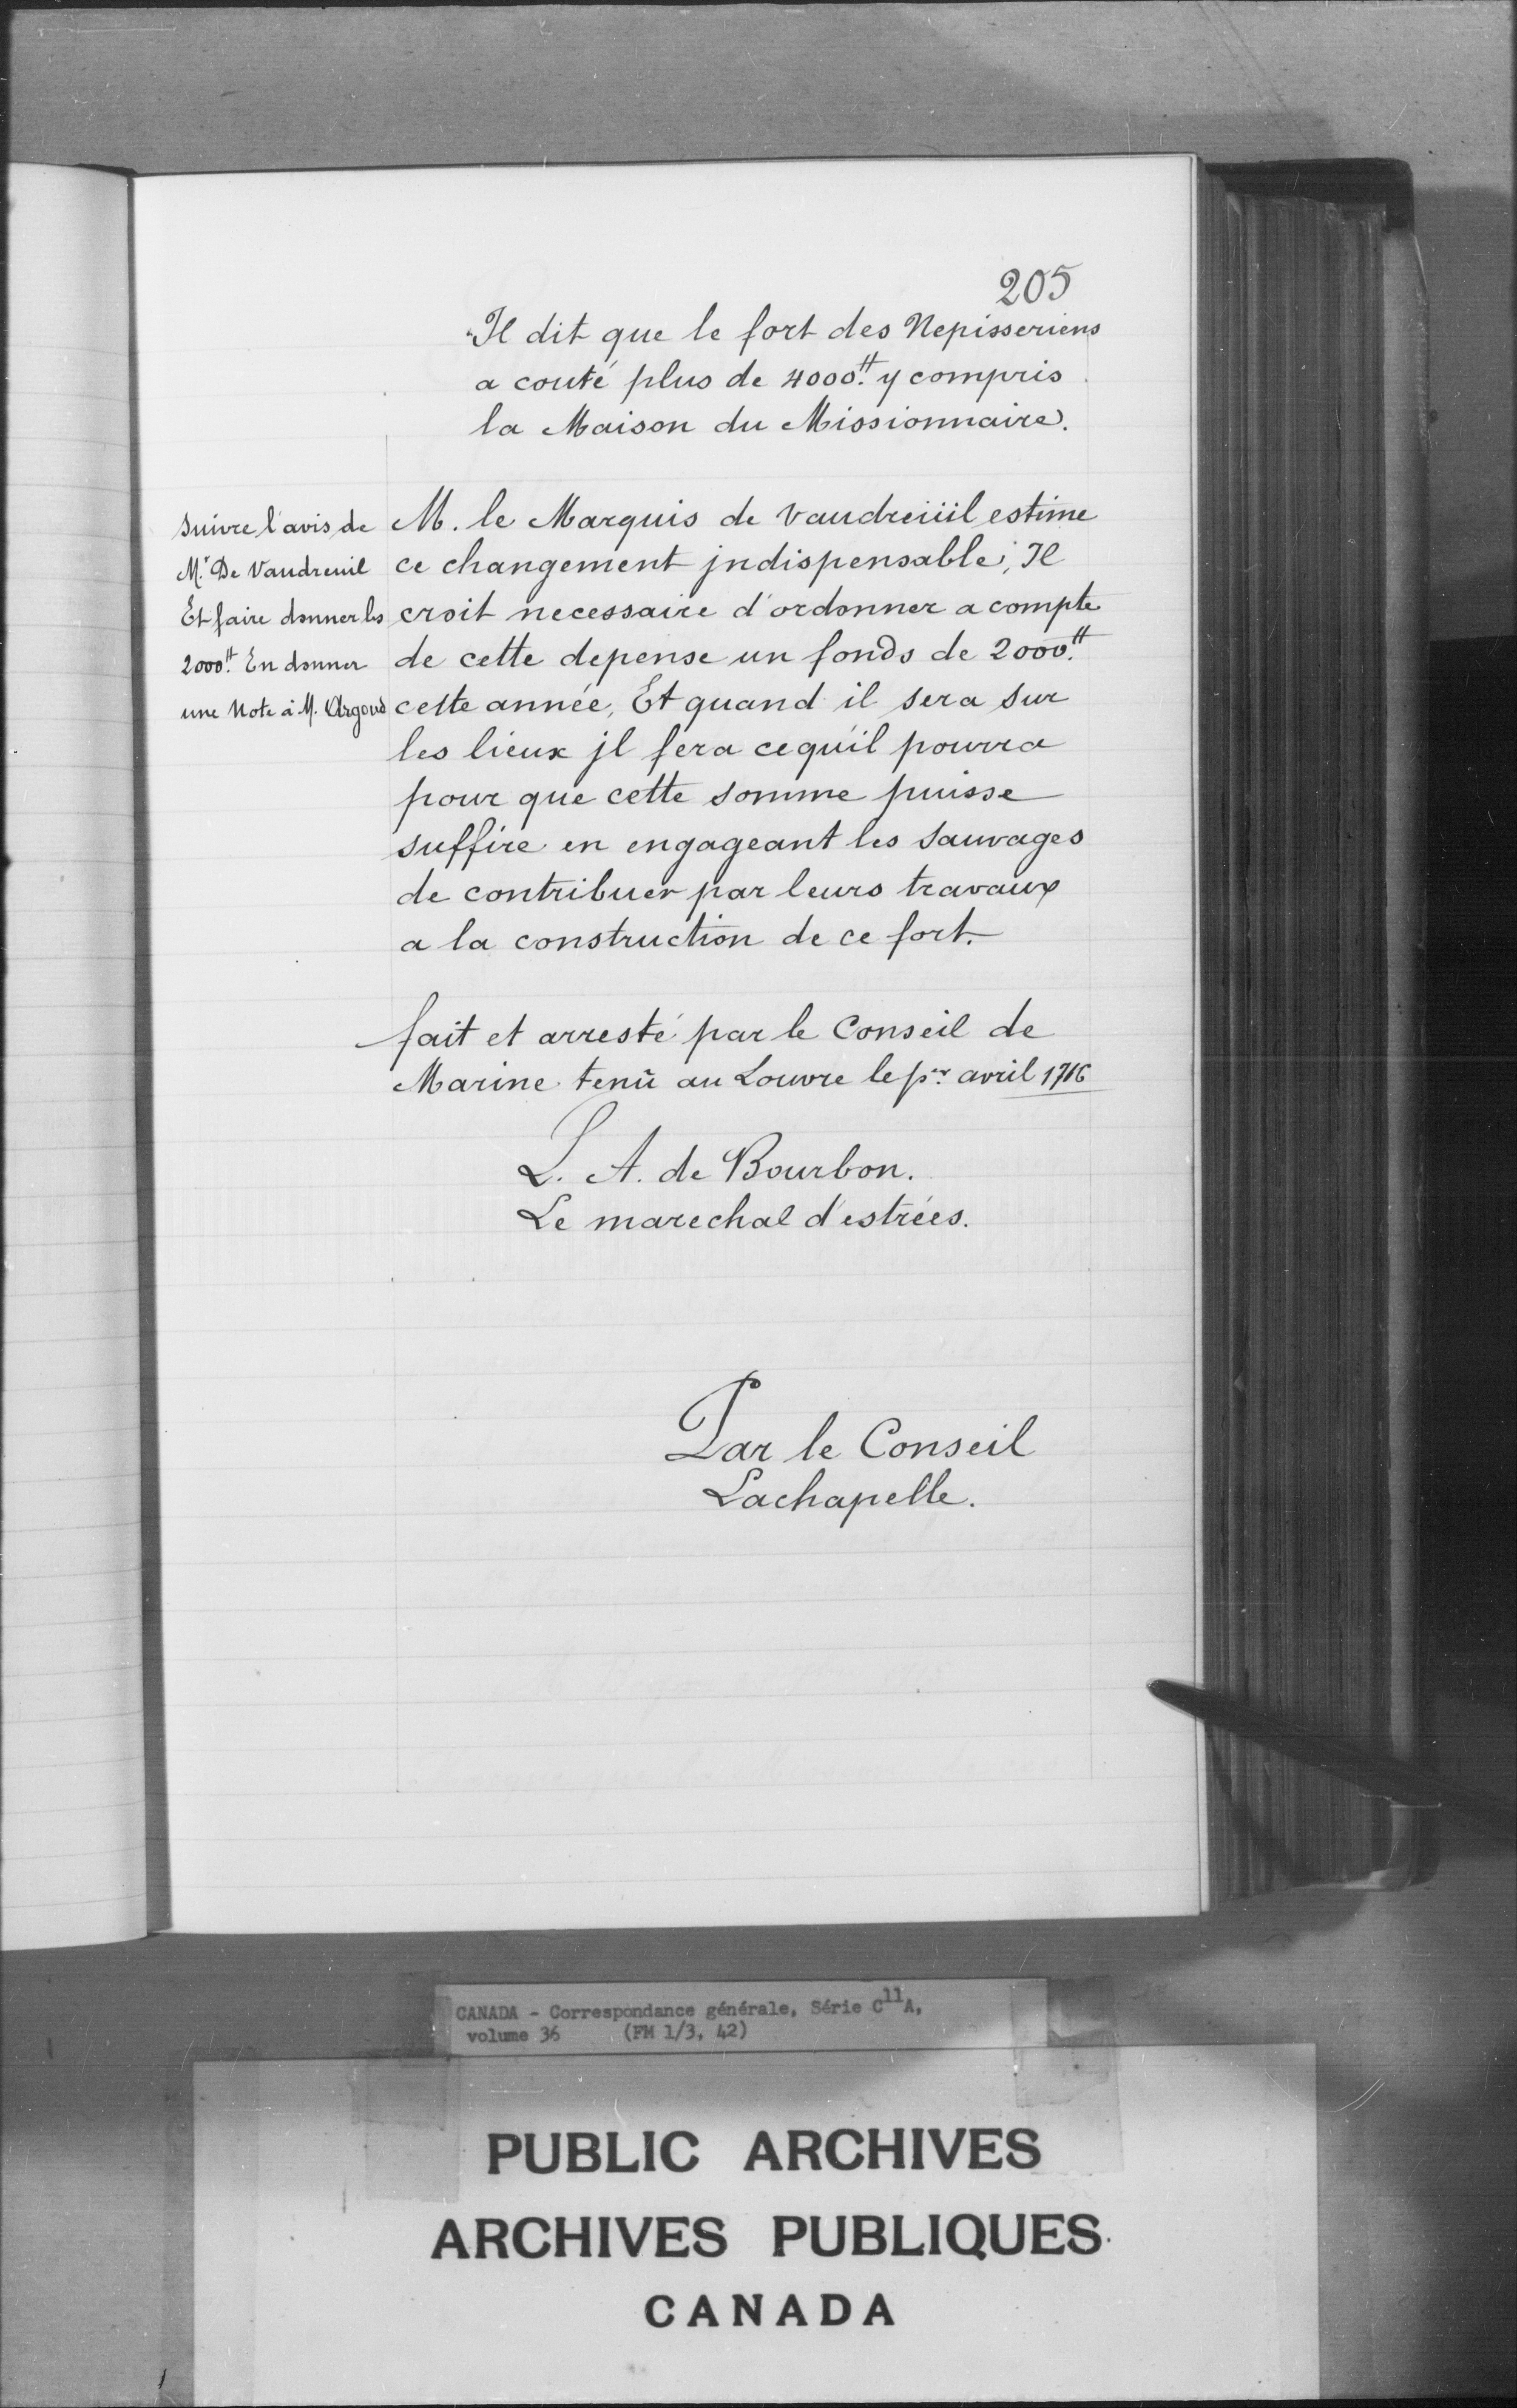 205
Il dit que le fort des Nepisseriens
a couté plus de 4000.tt y compris
la Maison du Missionnaire.
Suivre l'avis de
M.r De Vaudreuil
Et faire donner les
2000.tt En donner
une Note à M. Argoud
M. le Marquis de Vaudreüil estime
ce changement jndispensable; Il
croit necessaire d'ordonner a compte
de cette depense un fonds de 2000.tt
cette année, Et quand il sera sur
les lieux jl fera cequ'il pourra
pour que cette somme puisse
suffire en engageant les Sauvages
de contribuer par leurs travaux
a la construction de ce fort.
fait et arresté par le Conseil de
Marine tenû au Louvre le p.er avril 1716
L. A. de Bourbon.
Le marechal d'estrées.
Par le Conseil
Lachapelle.
CANADA - Correspondance générale, Série C11A,
volume 36 (FM 1/3, 42)
PUBLIC ARCHIVES
ARCHIVES PUBLIQUES
CANADA